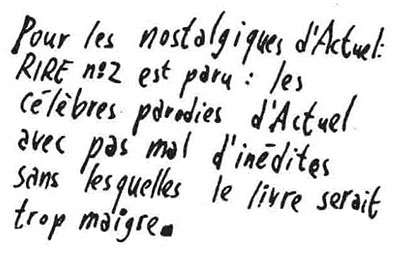 Pour les nostalgiques d'Actuel:
RIRE nº2 est paru : les
célèbres parodies d'Actuel
avec pas mal d'inédites
sans lesquelles le livre serait
trop maigre.